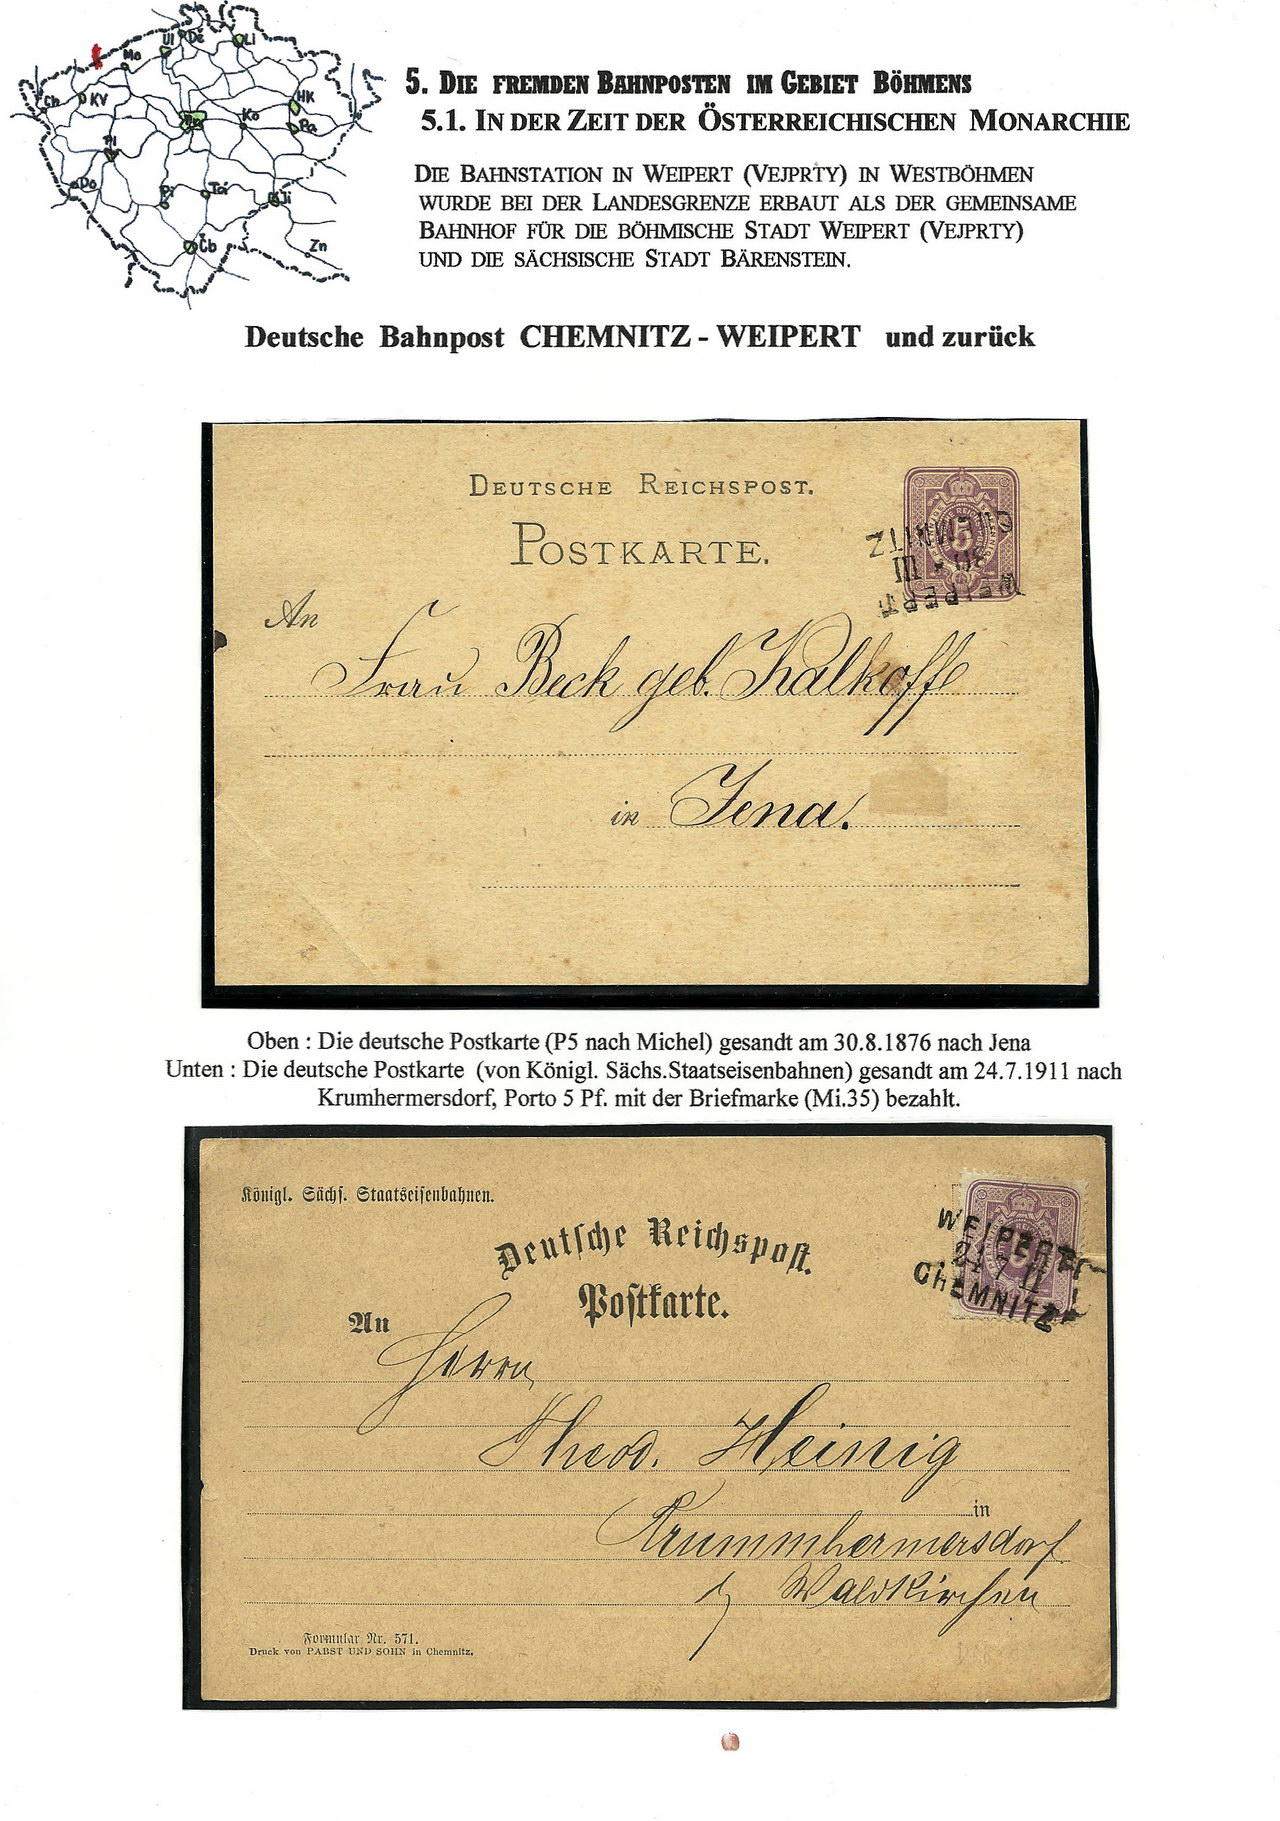 Ul Dě Li
Mo
Ch KV HK
Pr Ko Pa
Pl
Do Pi Tá Ji
Čb Zn
5. DIE FREMDEN BAHNPOSTEN IM GEBIET BÖHMENS
5.1. IN DER ZEIT DER ÖSTERREICHISCHEN MONARCHIE
DIE BAHNSTATION IN WEIPERT (VEJPRTY) IN WESTBÖHMEN
WURDE BEI DER LANDESGRENZE ERBAUT ALS DER GEMEINSAME
BAHNHOF FÜR DIE BÖHMISCHE STADT WEIPERT (VEJPRTY)
UND DIE SÄCHSISCHE STADT BÄRENSTEIN.
Deutsche Bahnpost CHEMNITZ - WEIPERT und zurück
DEUTSCHE REICHSPOST.
POSTKARTE.
5
CHEMNITZ
30 * III
WEIPERT
An
Frau Beck geb. Kalkoff
in Jena.
Oben : Die deutsche Postkarte (P5 nach Michel) gesandt am 30.8.1876 nach Jena
Unten : Die deutsche Postkarte (von Königl. Sächs.Staatseisenbahnen) gesandt am 24.7.1911 nach
Krumhermersdorf, Porto 5 Pf. mit der Briefmarke (Mi.35) bezahlt.
Königl. Sächs. Staatseisenbahnen.
Deutsche Reichspost.
Postkarte.
WEIPERT
24 7 11
ChEMNITZ
An
Herrn
Theod. Heinig
in
Krummhermersdorf
Waldkirchen
Formular Nr. 571.
Druck von PABST UND SOHN in Chemnitz.